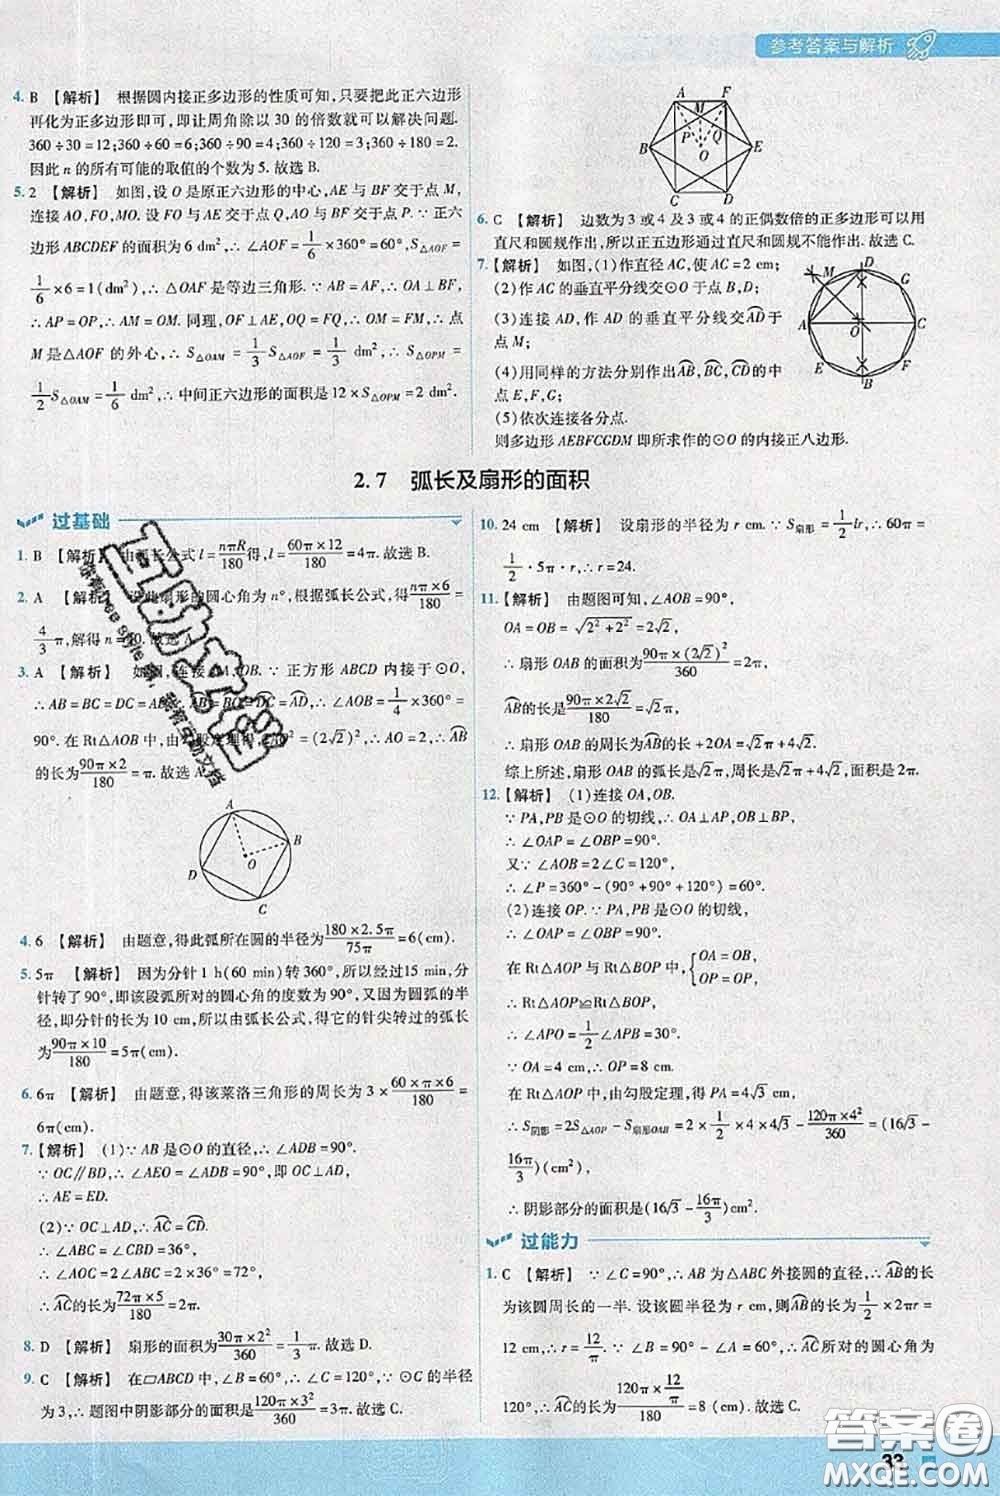 参考答案与解析
4. B 【解析】 根据圆内接正多边形的性质可知,只要把此正六边形
再化为正多边形即可,即让周角除以 30 的倍数就可以解决问题.
360÷30=12;360÷60=6;360÷90=4;360÷120=3;360÷180=2.
因此 n 的所有可能的取值的个数为 5.故选 B.
5. 2 【解析】 如图,设 O 是原正六边形的中心,AE 与 BF 交于点 M,
连接 AO,FO,MO.设 FO 与 AE 交于点 Q,AO 与 BF 交于点 P.∵ 正六
边形 ABCDEF 的面积为 6 dm²,∴ ∠AOF=1/6×360°=60°,S△AOF=
1/6×6=1(dm²),∴ △OAF 是等边三角形.∵ AB=AF,∴ OA⊥BF,
∴ AP=OP,∴ AM=OM.同理,OF⊥AE,OQ=FQ,∴ OM=FM,∴ 点
M 是△AOF 的外心,∴ S△OAM=1/3S△AOF=1/3 dm²,∴ S△OPM=
1/2S△OAM=1/6 dm²,∴ 中间正六边形的面积是 12×S△OPM=2 dm².
A F M P Q B O E C D
6. C 【解析】 边数为 3 或 4 及 3 或 4 的正偶数倍的正多边形可以用
直尺和圆规作出,所以正五边形通过直尺和圆规不能作出.故选 C.
7.【解析】 如图,(1)作直径 AC,使 AC=2 cm;
(2)作 AC 的垂直平分线交⊙O 于点 B,D;
(3)连接 AD,作 AD 的垂直平分线交⌒AD于
点 M;
(4)用同样的方法分别作出⌒AB,⌒BC,⌒CD的中
点 E,F,G;
(5)依次连接各分点.
则多边形 AEBFCGDM 即所求作的⊙O 的内接正八边形.
D M G A O C E F B
2.7 弧长及扇形的面积
过基础
1. B 【解析】 由弧长公式 l=nπR/180得,l=60π×12/180=4π.故选 B.
2. A 【解析】 设此扇形的圆心角为 n°,根据弧长公式,得nπ×6/180=
4/3π,解得 n=40.故选 A.
3. A 【解析】 如图,连接 OA,OB.∵ 正方形 ABCD 内接于⊙O,
∴ AB=BC=DC=AD,∴ ⌒AB=⌒BC=⌒DC=⌒AD,∴ ∠AOB=1/4×360°=
90°.在 Rt△AOB 中,由勾股定理得,2AO²=(2√2)²,∴ AO=2,∴ ⌒AB
的长为90π×2/180=π.故选 A.
A B O D C
4. 6 【解析】 由题意,得此弧所在圆的半径为180×2.5π/75π=6(cm).
5. 5π 【解析】 因为分针 1 h(60 min)转 360°,所以经过15 min,分
针转了 90°,即该段弧所对的圆心角的度数为 90°,又因为圆弧的半
径,即分针的长为 10 cm,所以由弧长公式,得它的针尖转过的弧长
为90π×10/180=5π(cm).
6. 6π 【解析】 由题意,得该莱洛三角形的周长为 3×60×π×6/180=
6π(cm).
7.【解析】 (1)∵ AB 是⊙O 的直径,∴ ∠ADB=90°.
∵ OC∥BD,∴ ∠AEO=∠ADB=90°,即 OC⊥AD,
∴ AE=ED.
(2)∵ OC⊥AD,∴ ⌒AC=⌒CD.
∴ ∠ABC=∠CBD=36°,
∴ ∠AOC=2∠ABC=2×36°=72°,
∴ ⌒AC的长为72π×5/180=2π.
8. D 【解析】 扇形的面积为30π×2²/360=1/3π.故选 D.
9. C 【解析】 在▱ABCD 中,∠B=60°,∴ ∠C=120°.∵ ⊙C 的半径
为 3,∴ 题图中阴影部分的面积是120π×3²/360=3π.故选 C.
10. 24 cm 【解析】 设扇形的半径为 r cm.∵ S扇形=1/2lr,∴ 60π=
1/2·5π·r,∴ r=24.
11.【解析】 由题图可知,∠AOB=90°,
OA=OB=√2²+2²=2√2,
∴ 扇形 OAB 的面积为90π×(2√2)²/360=2π,
⌒AB的长是90π×2√2/180=√2π,
∴ 扇形 OAB 的周长为⌒AB的长+2OA=√2π+4√2.
综上所述,扇形 OAB 的弧长是√2π,周长是√2π+4√2,面积是 2π.
12.【解析】 (1)连接 OA,OB.
∵ PA,PB 是⊙O 的切线,∴ OA⊥AP,OB⊥BP,
∴ ∠OAP=∠OBP=90°.
又∵ ∠AOB=2∠C=120°,
∴ ∠P=360°-(90°+90°+120°)=60°.
(2)连接 OP.∵ PA,PB 是⊙O 的切线,
∴ ∠OAP=∠OBP=90°.
在 Rt△AOP 与 Rt△BOP 中,{OA=OB, OP=OP,
∴ Rt△AOP≌Rt△BOP,
∴ ∠APO=1/2∠APB=30°.
∵ OA=4 cm,∴ OP=8 cm.
在 Rt△AOP 中,由勾股定理,得 PA=4√3 cm,
∴ S阴影=2S△AOP-S扇形OAB=2×1/2×4×4√3-120π×4²/360=(16√3-
16π/3)(cm²),
∴ 阴影部分的面积是(16√3-16π/3)cm².
过能力
1. C 【解析】 ∵ ∠C=90°,∴ AB为△ABC 外接圆的直径,∴ ⌒AB的长
为该圆周长的一半.设该圆半径为 r cm,则⌒AB的长为1/2×2πr=
12 cm,∴ r=12/π.∵ ⌒AC的长=⌒BC的长=⌒AB的长,∴ ⌒AC所对的圆心角为
120°,∴ ⌒AC的长为120π×12/π/180=8 (cm).故选 C.
33
答案圈
MXQE.COM
互动文档